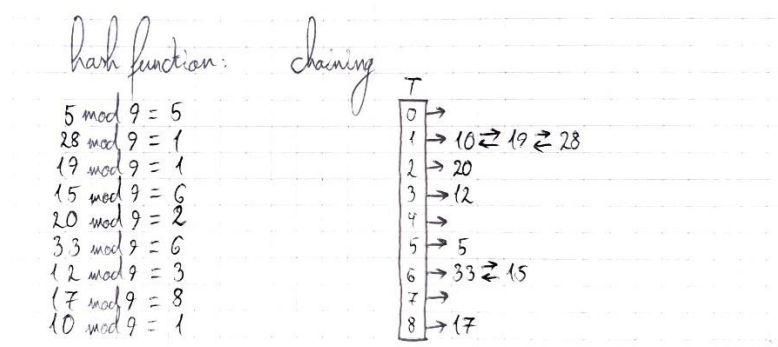 hash function: chaining
5 mod 9 = 5
28 mod 9 = 1
19 mod 9 = 1
15 mod 9 = 6
20 mod 9 = 2
33 mod 9 = 6
12 mod 9 = 3
17 mod 9 = 8
10 mod 9 = 1
T
0 →
1 → 10 ⇄ 19 ⇄ 28
2 → 20
3 → 12
4 →
5 → 5
6 → 33 ⇄ 15
7 →
8 → 17